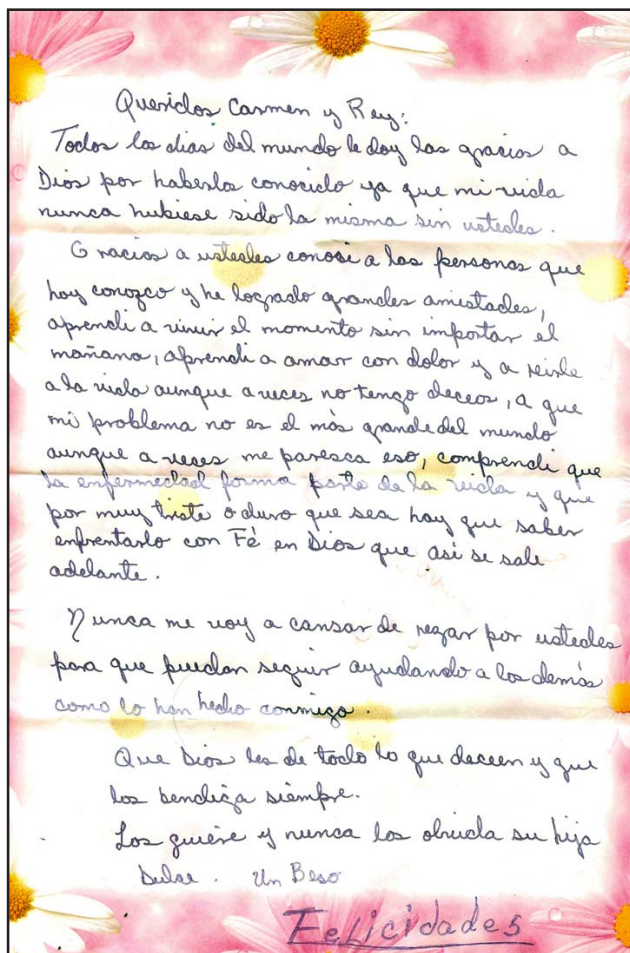 Queridos Carmen y Rey:
Todos los dias del mundo le doy las gracias a
Dios por haberlos conocido ya que mi vida
nunca hubiese sido la misma sin ustedes.
Gracias a ustedes conosi a las personas que
hoy conozco y he logrado grandes amistades,
aprendi a vivir el momento sin importar el
mañana, aprendi a amar con dolor y a reirle
a la vida aunque a veces no tengo deceos, a que
mi problema no es el más grande del mundo
aunque a veces me paresca eso, comprendi que
la enfermedad forma parte de la vida y que
por muy triste o duro que sea hay que saber
enfrentarlo con Fé en Dios que asi se sale
adelante.
Nunca me voy a cansar de rezar por ustedes
para que puedan seguir ayudando a los demás
como lo han hecho conmigo.
Que Dios les de todo lo que deceen y que
los bendiga siempre.
Los quiere y nunca los olvida su hija
Dulce. Un Beso
Felicidades